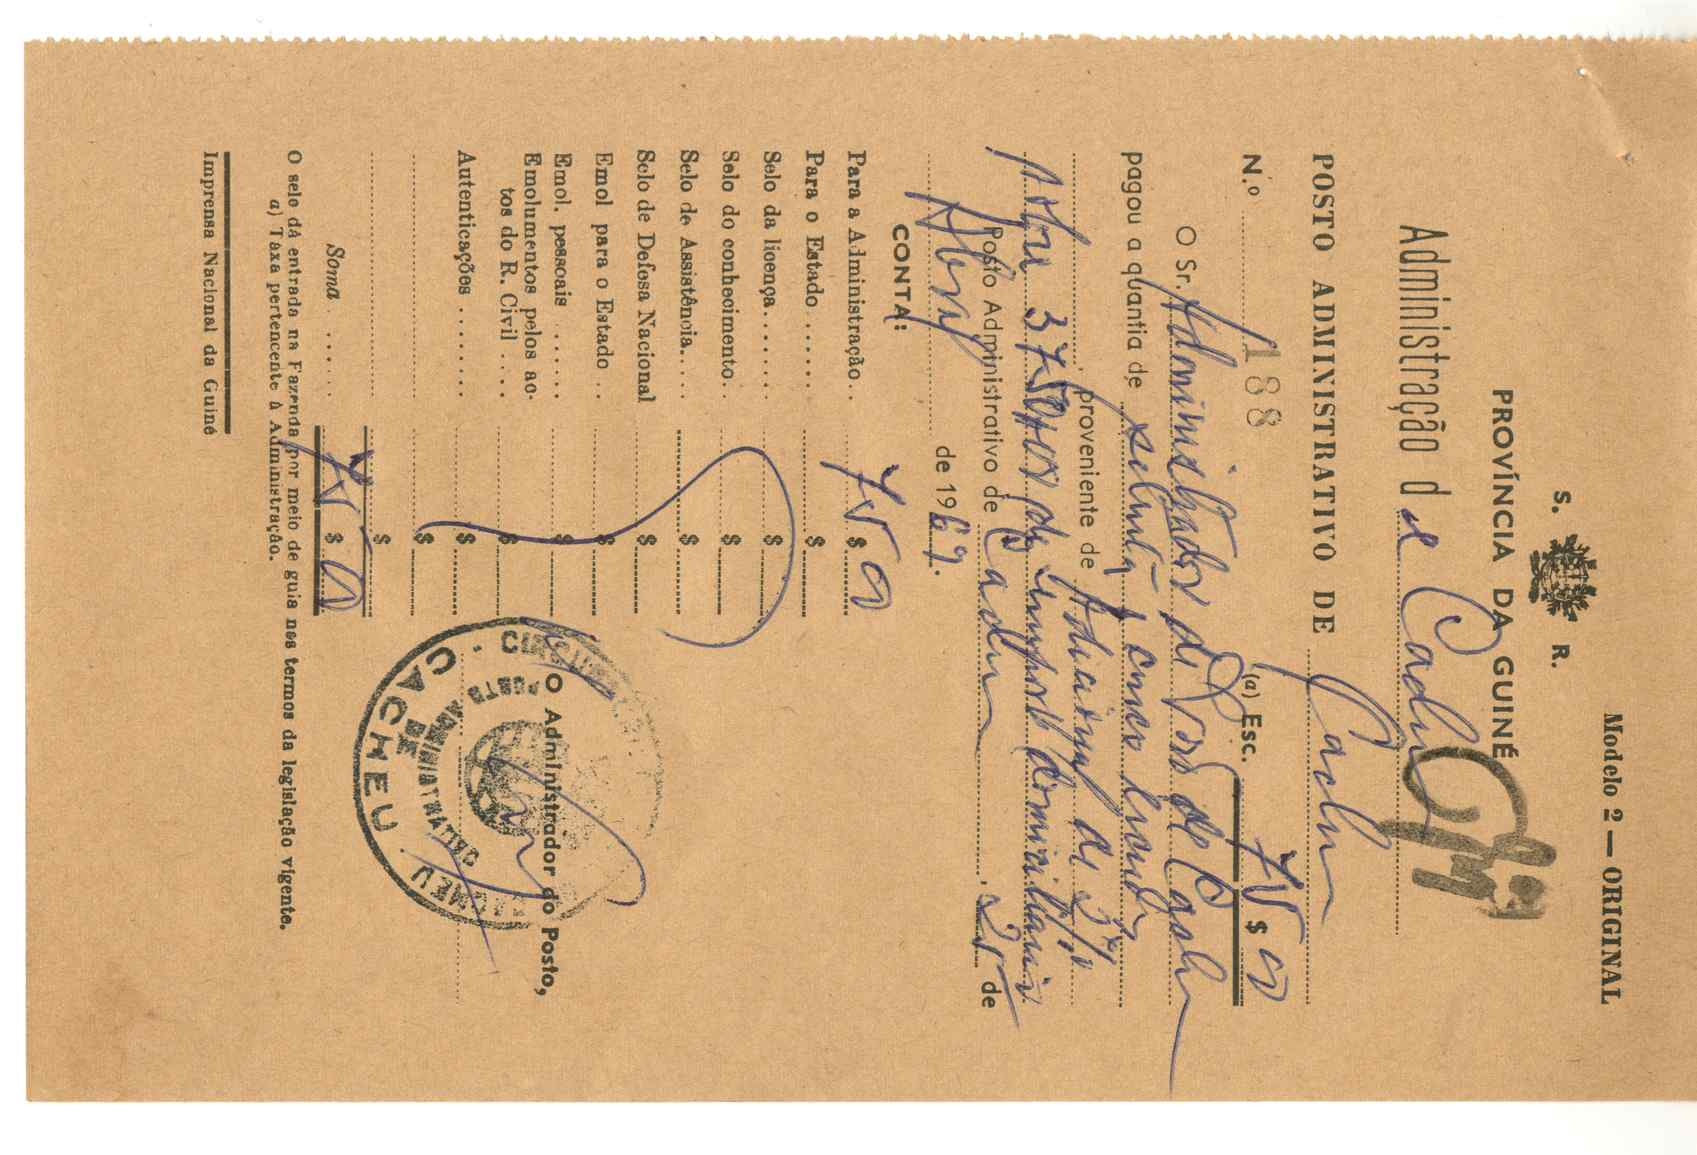 Modelo 2 — ORIGINAL
S. R.
PROVÍNCIA DA GUINÉ
Administração de Cacheu
POSTO ADMINISTRATIVO DE Cacheu
N.º 188 (a) Esc. 75$00
O Sr. Administrador do Posto de Cacheu
pagou a quantia de setenta e cinco escudos
proveniente de Adicional de 2%
sobre 3750$00 de imposto domiciliário
Posto Administrativo de Cacheu, 25 de
Abril de 1967.
CONTA:
Para a Administração . 75$00
Para o Estado ...... $
Selo da licença...... $
Selo do conhecimento. $
Selo de Assistência... $
Selo de Defesa Nacional $
Emol para o Estado .. $
Emol. pessoais ...... $
Emolumentos pelos ac-
tos do R. Civil .... $
Autenticações ....... $
$
$
Soma ...... 75$00
O Administrador do Posto,
CACHEU
O selo dá entrada na Fazenda por meio de guia nos termos da legislação vigente.
a) Taxa pertencente à Administração.
Imprensa Nacional da Guiné